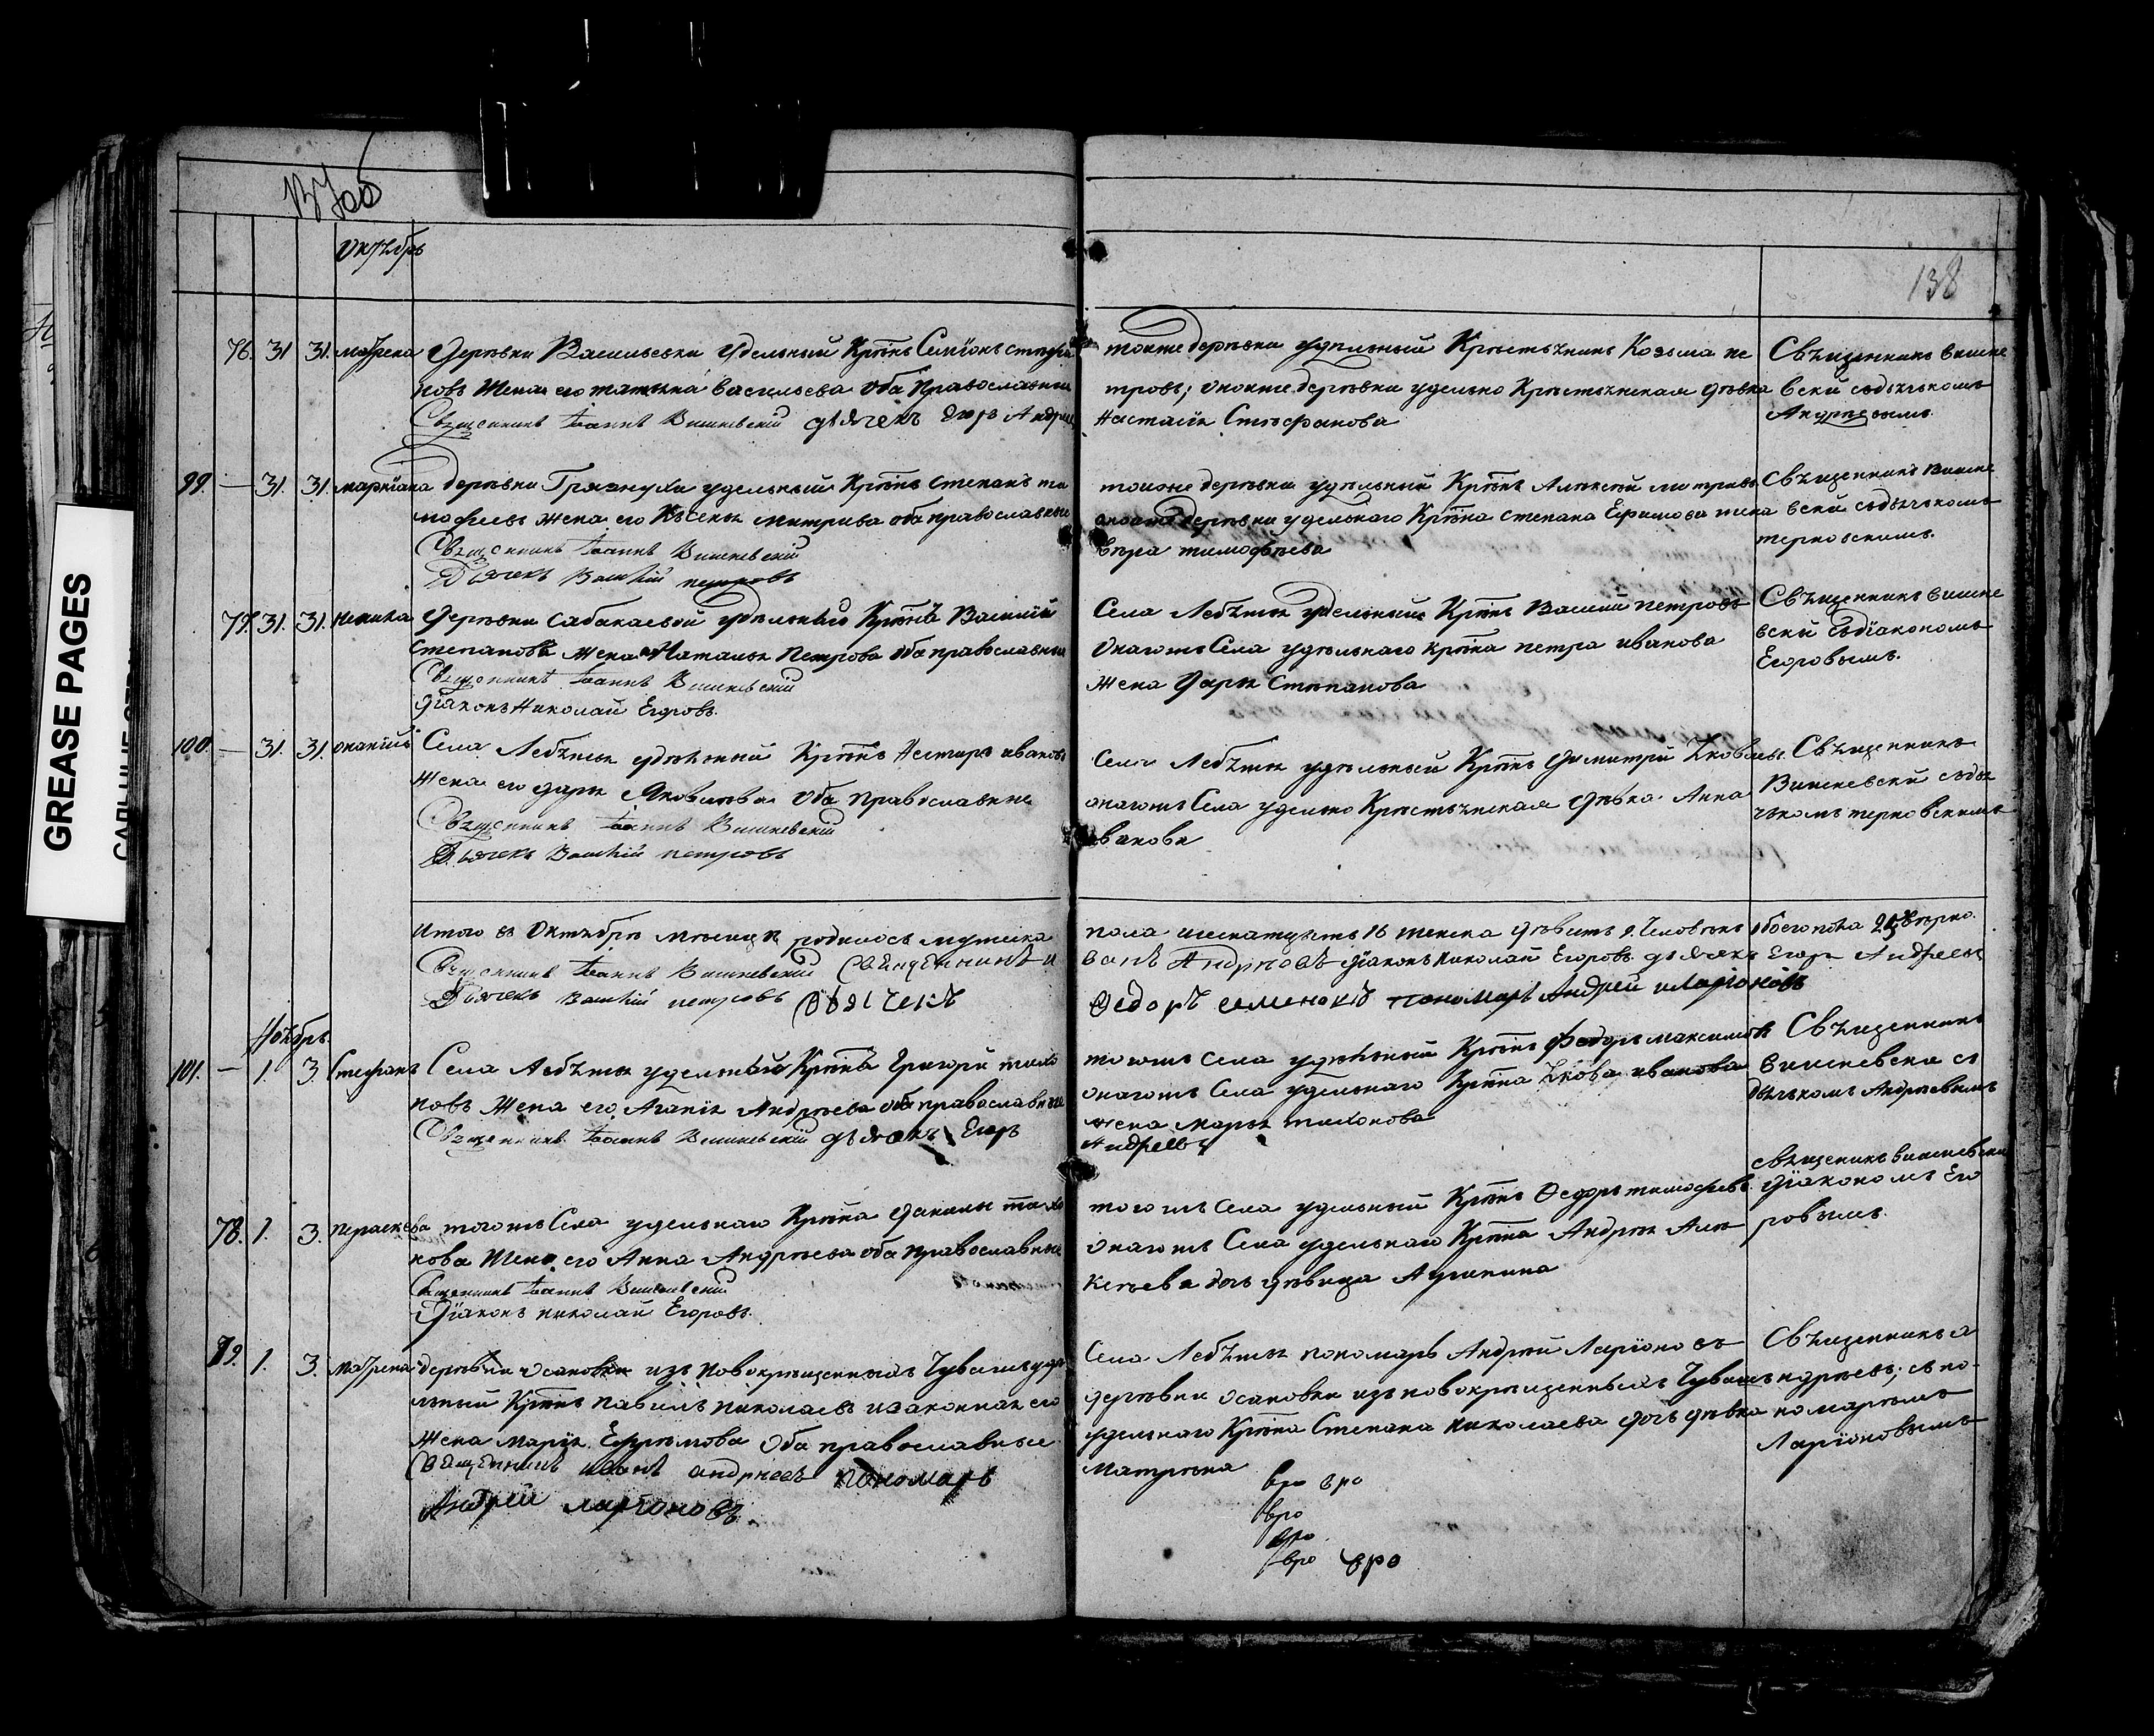 Октябрь
138
76. 31 31. Матрена Деревни Васильевки удельный Крѣнъ Семіонъ стефа
новъ Жена его татьяна васильева оба православныи
Священникъ Іоаннъ Вишневскій дьячекъ Егоръ Андрее
тоиже деревни удѣльный Крѣстьянинъ Козьма пе
тровъ; оноиже деревни удельно Крѣстьянская дѣвка
Настасія Стефанова
Священникъ вишне
вски съдьячькомъ
Андреевымъ.
99. — 31. 31. деревни Грязнухи удельный Крѣнъ Степанъ ти
мофеевъ жена его Ксенья митрива оба православные
Священникъ Іоаннъ Вишневскій
Дьячекъ Василій петровъ
тоиже деревни удѣльный Крѣнъ Алексей митривъ
оноиже деревни удельнаго Крѣна степана Ефимова жена
вѣра тимофѣева
Священникъ вишне
вски съдьячькомъ
терновскимъ.
77. 31. 31. Деревни сабакаевой удѣльнаго Крѣна Василій
степановъ жена Наталья Петрова оба православныи
Священникъ Іоаннъ Вишневскій
Діаконъ Николай Егоровъ.
Села Лебяжья удельный Крѣнъ Василій петровъ
Онагожъ Села удѣльнаго крѣна петра иванова
жена Дарья Степанова
Священникъ вишне
вски съдіакономъ
Егоровымъ.
100. — 31. 31. Села Лебяжья удѣльный Крѣнъ Нестиръ ивановъ
Жена его дарья Яковлева Оба православные
Священникъ Іоаннъ Вишневскій
Дьячекъ Василій петровъ
Села Лебяжья удѣльный Крѣнъ Димитрій Яковлевъ
онагожъ Села удельно Крѣстьянская дѣвка Анна
иванова
Священникъ
Вишневски съдья
чкомъ терновскимъ
Итого въ Октябрѣ месяцѣ родилось мужеска
Священникъ Іоаннъ Вишневскій Священникъ и
Дьячекъ Василій петровъ дьячекъ
пола шеснатцеть 16 женска девить 9. Человекъ обоего пола 25
ванъ Андреевъ діаконъ николай Егоровъ дьячекъ Егоръ Андреевъ
Федоръ семеновъ пономарь Андрей иларіоновъ
Ноябрь
101. — 1. 3. Стефанъ Села Лебяжья удельный Крѣнъ Григори тихо
новъ Жена его, Агапія Андреева оба православныи
Священникъ Іоаннъ Вишневскій дьячекъ Егоръ
тогожъ села удѣльный Крѣнъ Федоръ максимовъ
онагожъ Села удельнаго Крѣна Якова иванова
жена марья тихонова
Андреевъ
Священникъ
Вишневски съ
дьячькомъ Андреевымъ
78. 1. 3. Параскева тогожъ Села удельнаго Крѣна данилы тихо
нова Жена его Анна Андреева оба православныи
Священникъ Іоаннъ Вишневскій
Діаконъ николай Егоровъ.
тогожъ Села удельный Крѣнъ Федоръ тимофеевъ
онагожъ Села удельнаго Крѣна Андрея Але
ксеева дочь дѣвица Агрипина
Священикъ вишневски
діакономъ Его
ровымъ.
79. 1. 3. Матрена деревни Осановки изъ новокрещенныхъ Чувашъ удѣ
льный Крѣнъ павилъ николаевъ изаконная его
Жена Марія Ефремова Оба православные
Священникъ иванъ андреевъ пономарь
Андрей ларионовъ
Села Лебяжья пономарь Андрей Ларіоновъ
деревни осановки изъ новокрещенныхъ Чувашъ
удельнаго Крѣна Степана николаева дочь дѣвка
Матрена
Священникъ а
ндреевъ; съ по-
номаремъ
Ларіоновымъ
вро вро
вро
вро
вро вро
GREASE PAGES